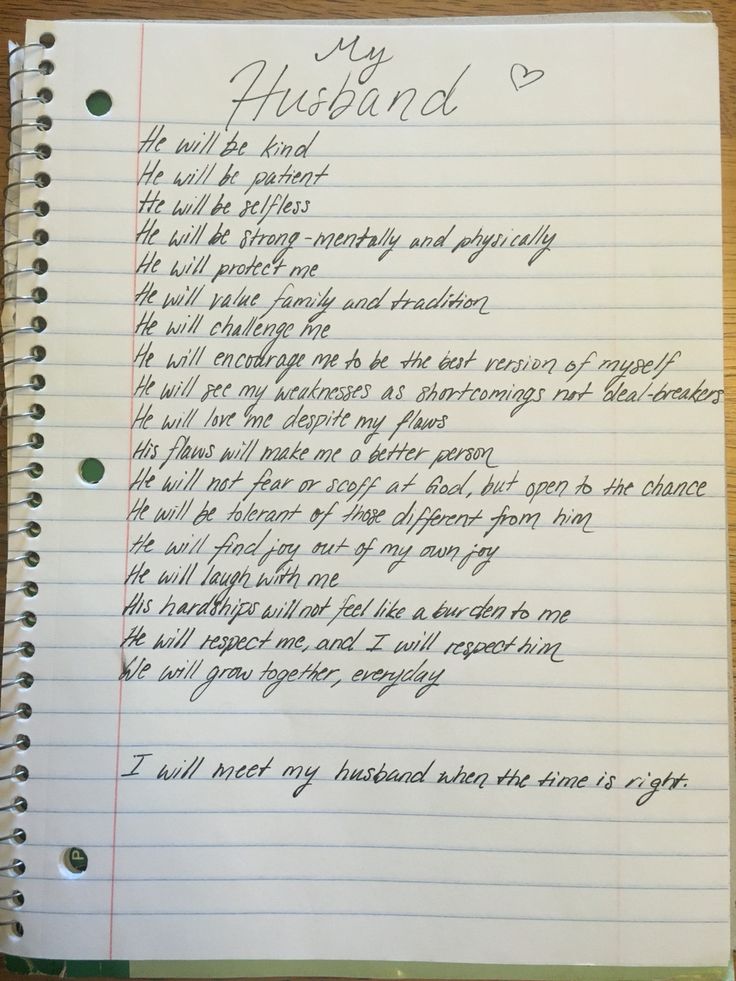 My
Husband
He will be kind
He will be patient
He will be selfless
He will be strong - mentally and physically
He will protect me
He will value family and tradition
He will challenge me
He will encourage me to be the best version of myself
He will see my weaknesses as shortcomings not deal-breakers
He will love me despite my flaws
His flaws will make me a better person
He will not fear or scoff at God, but open to the chance
He will be tolerant of those different from him
He will find joy out of my own joy
He will laugh with me
His hardships will not feel like a burden to me
He will respect me, and I will respect him
We will grow together, everyday
I will meet my husband when the time is right.
P